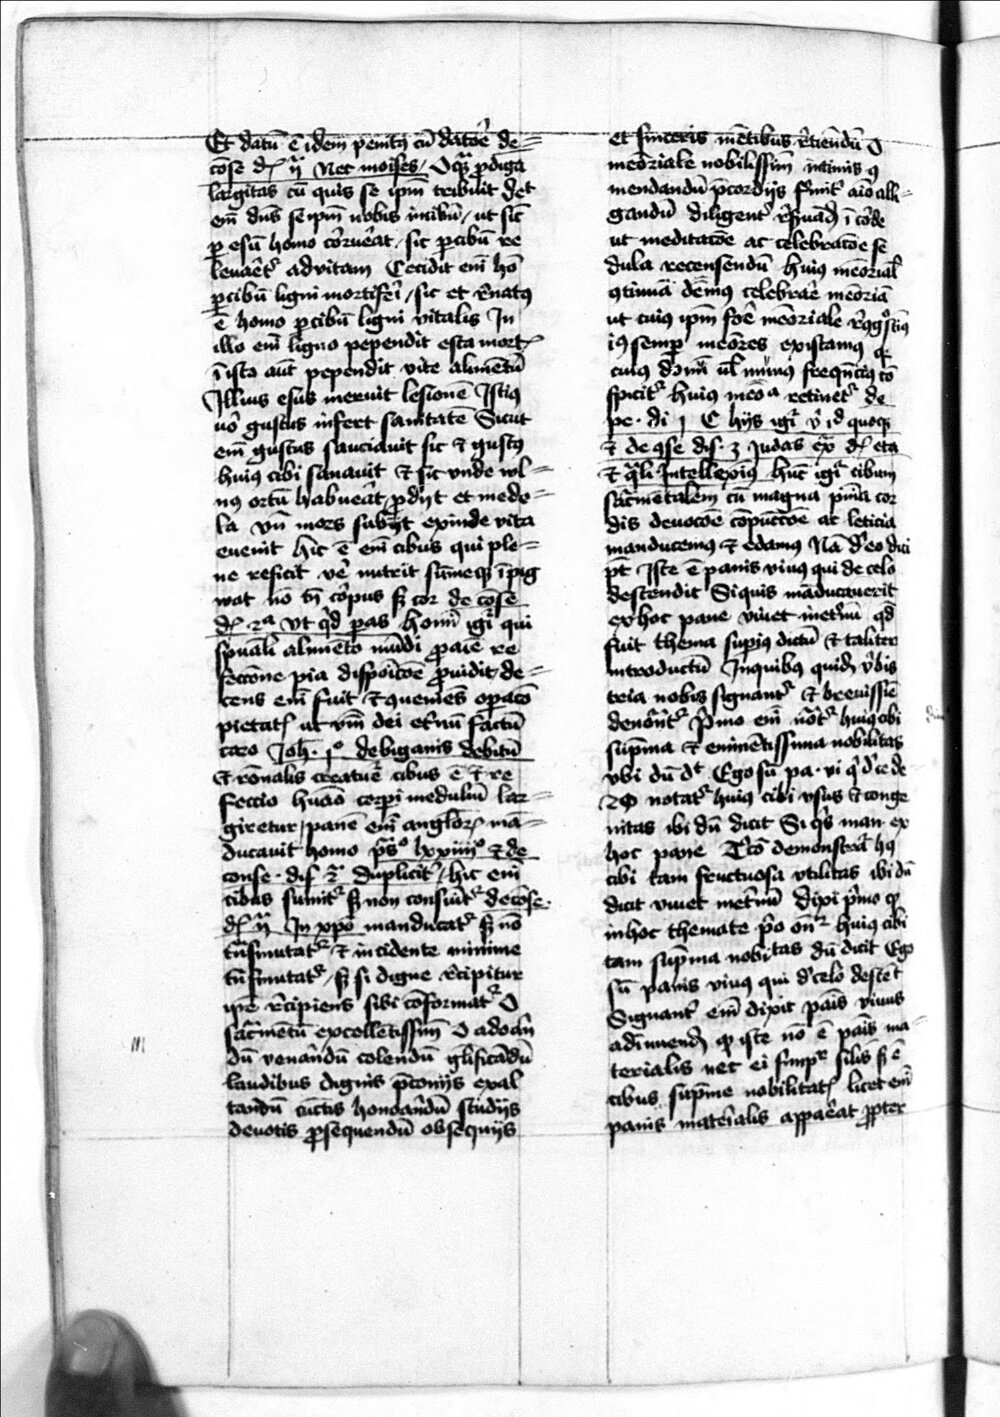 Et datū ē idem penitꝰ cū datoē de=
cōse dꝭ ij Nec moises / O qͣ ꝓdiga
largitas cū quis se ip̄m tribuit det
em̄ dn̄s seip̄m nobis in cibū / ut sic
ꝑ esū homo corruerat / sic ꝑ cibū re
levaretͬ ad vitam Cecidit em̄ hō
ꝑ cibū ligni mortiferi / sic et
ē homo ꝑ cibū ligni vitalis In
illo em̄ ligno pependit esca mortꝭ
ī isto aut̄ pependit vite alimētū
Illius esus meruit lesionē Istiꝰ
vo gustus infert sanitatē Sicut
em̄ gustus sauciauit sic ⁊ gustꝰ
huiꝰ cibi sanauit ⁊ sic vnde vl=
nꝰ ortū habuerat / ꝓdijt et mede=
la vn̄ mors subijt exinde vita
euenit hic ē em̄ cibus qui ple=
ne reficit ve nutrit sūmeqꝫ īpīg
wat nō cōrpus sꝫ cor de cōse
dꝭ 2ª vt qͥd paras homī igͥ qui
spūali alimēto mūdi ꝓaie re
feccōne pia disposicōe ꝓuidit / de=
cens em̄ fuit ⁊ queniēs oꝑacō
pietatꝭ ut vm̄ dei et̄nū factū
caro Joh. 1º debiganis debitū
⁊ rōnalis creatuē cibus ē ⁊ re
feccio huāo corpi medulitū lar=
giretur / panē em̄ anglorꝝ mā=
ducauit homo ps̄º lxxiiijº ⁊ de
conse. dis 2ª dupliciter / hic em̄
cibus sumitͬ sꝫ non consūitͬ de cōse.
dꝭ ij In xp̄o manducatͬ sꝫ nō
tn̄smutatͬ ⁊ incidente minime
tn̄smutatͬ / sꝫ si digne recipitur
ipē recipiens sibi cōformatͬ O
sacͣmētū excellētissim̄ O adorān
dū venāndū colendū glificādū
laudibus dignis p̄conijs exal
tandū cūctis honorādū studijs
deuotis ꝓsequendū obsequijs
et sinceris mētibus retiēndū O
meoriale nobilissim̄ intimis ꝯ
mendandū p̄cordijs firmitͬ aīo alli=
gandū diligentͬ ī corde
ut meditacōe ac celebracōe se
dula recensendū huiꝰ meorial
ꝯtinuā dēmꝰ celebrare meoriā
ut cuiꝰ ip̄m foē meoriale
iꝰ semꝑ meores existamꝰ qͬ
cuiꝰ donū vl munus freqn̄ciꝰ cō
spicitͬ huiꝰ meoª retinetͬ de
pe. di 1 C hijs igͥ vͦ id quoqꝫ
⁊ de ꝯse dis. 3 Judas dꝭ eta
⁊ qͣli Intelleximꝰ hūc igͥ cibum
sacͣmētalem cū magna pn̄ia cor
dis deuocōe cōpūccōe ac leticia
manducemꝰ ⁊ edamꝰ Nā dͤ eo dici
pt̄ Iste ē panis viuꝰ qui de celo
descendit Si quis māducauerit
ex hoc pane viuet in et̄nū qd̄
fuit thema supiꝰ dictū ⁊ taliter
introductū In quibꝰ quidē vbis
tria nobis signantͬ ⁊ breuissie
denotātͬ Pͥmo em̄ notͬ huiꝰ cibi
sup̄ma ⁊ eminētissima nobilitas
vbi dū dt Ego sū pa. vi qͥ dͤ ce de
2º notatͬ huiꝰ cibi vsus ⁊ conge
nitas ibi dū dicit Si qͥs man ex
hoc pane Tͨcō demonstratͬ hꝰ
cibi tam fructuosa vtilitas ibi dū
dicit viuet in et̄nū dixi pͥmo qꝫ
in hoc themate pͥo on̄ͬ huiꝰ cibi
tam sup̄ma nobilitas dū dicit Ego
sū panis viuꝰ qui dͤ celo descēt
Signantͬ em̄ dixit panis viuus
ad inuendꝫ qꝫ iste nō ē panis ma=
terialis nec ei simpͬ silis sꝫ ē
cibus sup̄me nobilitatꝭ licet em̄
panis materialis appareat ꝓpter
m